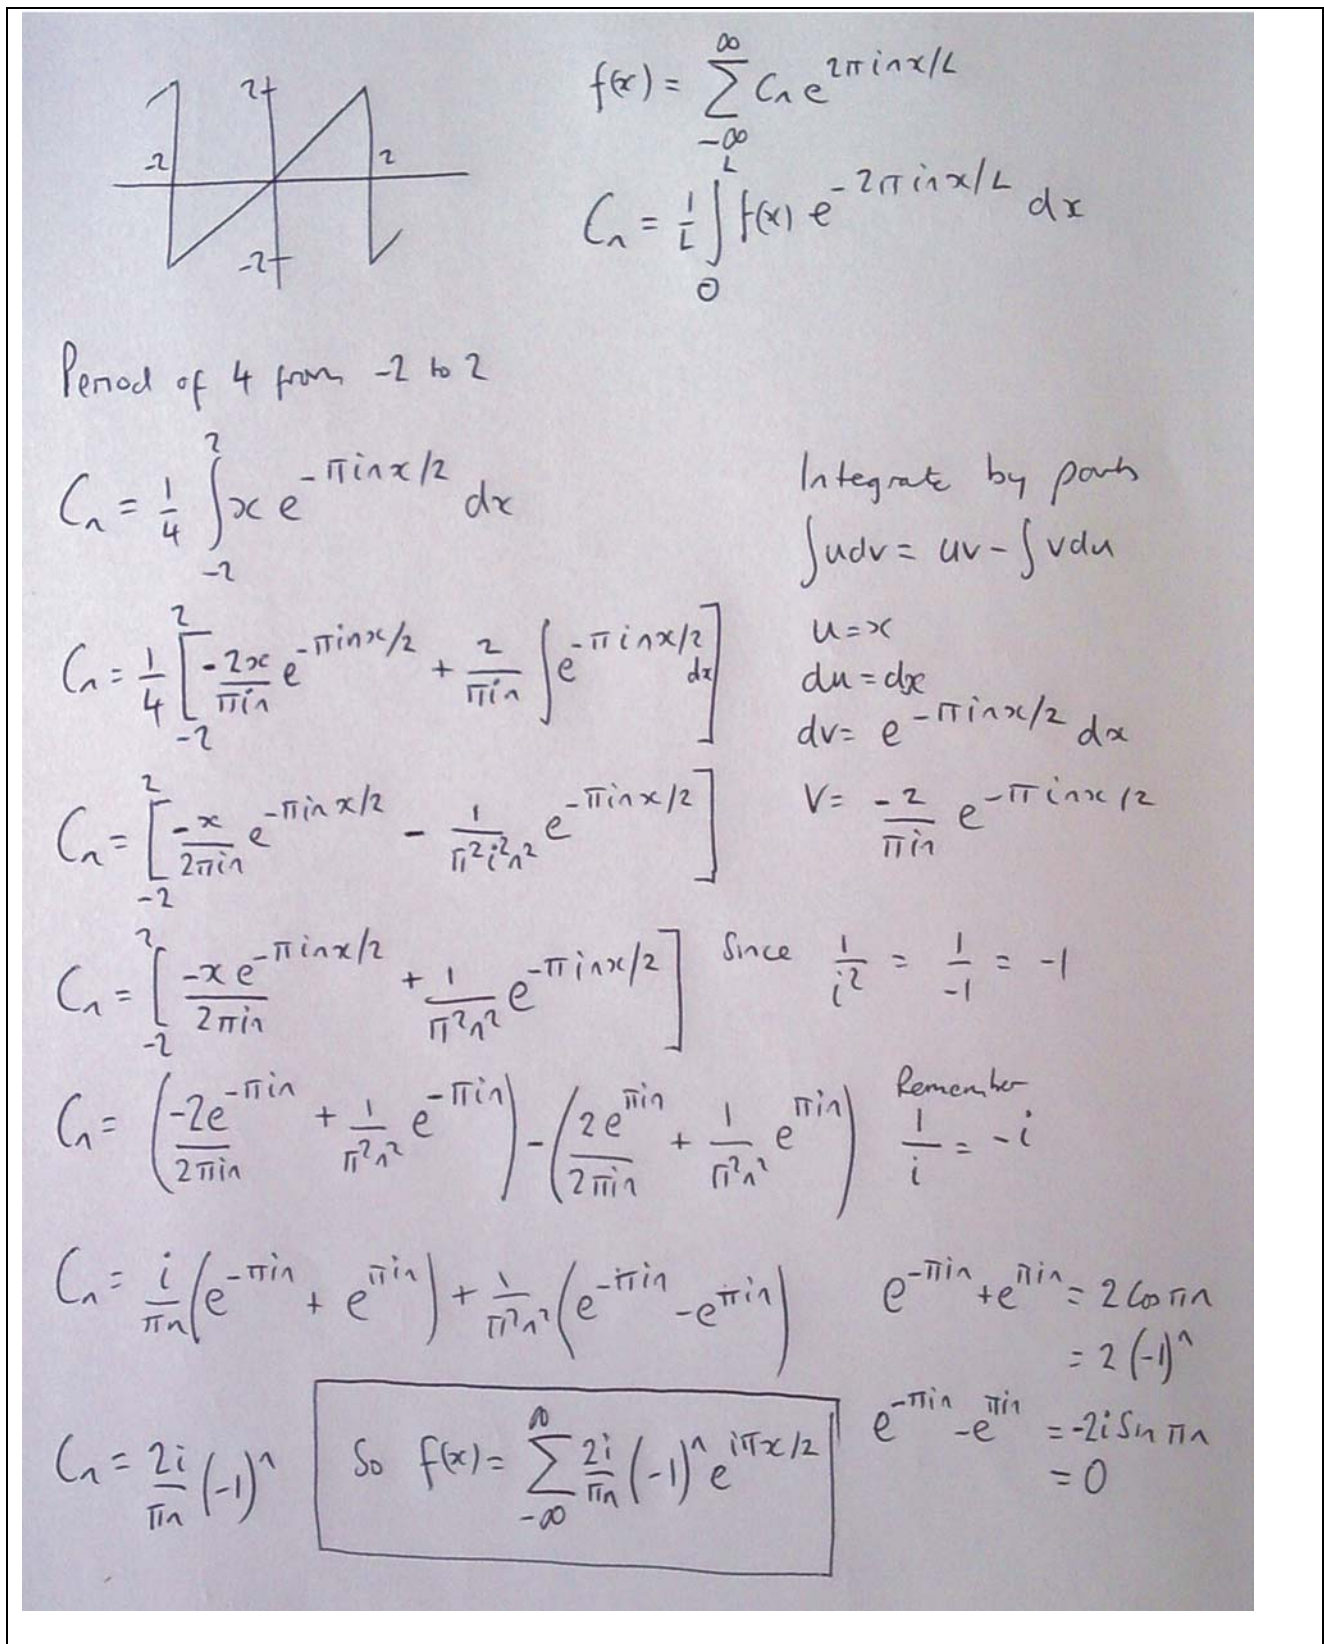 2
-2
2
-2
f(x) = ∑_{-∞}^{∞} Cₙ e^{2πinx/L}
Cₙ = 1/L ∫_0^L f(x) e^{-2πinx/L} dx
Period of 4 from -2 to 2
Cₙ = 1/4 ∫_{-2}^{2} x e^{-πinx/2} dx
Integrate by parts
∫udv = uv - ∫vdu
Cₙ = 1/4 _{-2}^{2}[ -2x/πin e^{-πinx/2} + 2/πin ∫e^{-πinx/2} dx ]
u = x
du = dx
dv = e^{-πinx/2} dx
Cₙ = _{-2}^{2}[ -x/2πin e^{-πinx/2} - 1/π²i²n² e^{-πinx/2} ]
V = -2/πin e^{-πinx/2}
Cₙ = _{-2}^{2}[ -x e^{-πinx/2}/2πin + 1/π²n² e^{-πinx/2} ] Since 1/i² = 1/-1 = -1
Cₙ = ( -2e^{-πin}/2πin + 1/π²n² e^{-πin} ) - ( 2e^{πin}/2πin + 1/π²n² e^{πin} )
Remember
1/i = -i
Cₙ = i/πn ( e^{-πin} + e^{πin} ) + 1/π²n² ( e^{-πin} - e^{πin} )
e^{-πin} + e^{πin} = 2 Cos πn
= 2 (-1)ⁿ
e^{-πin} - e^{πin} = -2i Sin πn
= 0
Cₙ = 2i/πn (-1)ⁿ
So f(x) = ∑_{-∞}^{∞} 2i/πn (-1)ⁿ e^{iπx/2}